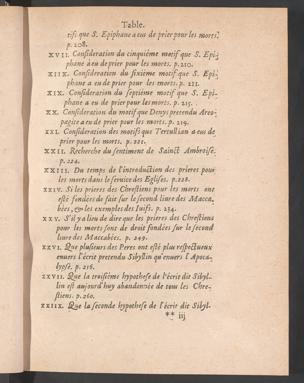 Table.
tifs que S. Epiphane a eus de prier pour les morts.
p. 208.
XVII. Consideration du cinquiéme motif que S. Epi-
phane a eu de prier pour les morts. p. 210.
XIIX. Consideration du sixième motif que S. Epi-
phane a eu de prier pour les morts. p. 211.
XIX. Consideration du septieme motif que S. Epi-
phane a eu de prier pour les morts. p. 215.
XX. Consideration du motif que Denys pretendu Areo-
pagite a eu de prier pour les morts. p. 219.
XXI. Consideration des motifs que Tertullian a eus de
prier pour les morts. p. 221.
XXII. Recherche du sentiment de Sainct Ambroise.
p. 224.
XXIII. Du temps de l'introduction des prieres pour
les morts dans le service des Eglises. p. 228.
XXIV. Si les prieres des Chrestiens pour les morts ont
esté fondées de suite sur le second livre des Macca-
bées, & les exemples des Iuifs. p. 234.
XXV. S'il y a lieu de dire que les prieres des Chrestiens
pour les morts sont de droit fondées sur le second
livre des Maccabées. p. 249.
XXVI. Que plusieurs des Peres ont esté plus respectueux
enuers l'écrit pretendu Sibyllin qu'enuers l'Apoca-
lypse. p. 256.
XXVII. Que la troisiéme hypothese de l'écrit dit Sibyl-
lin est aujourd'huy abandonnée de tous les Chre-
stiens. p. 260.
XXIIX. Que la seconde hypothese de l'écrit dit Sibyl-
** iij